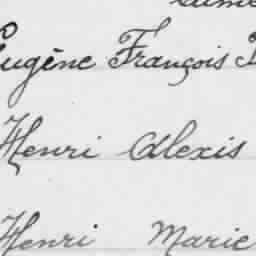 Eugène François
Henri Alexis
Henri Marie